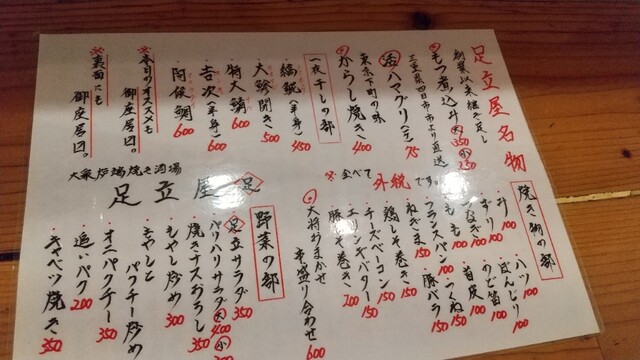 足立屋名物
創業以来継ぎ足し
もつ煮込み 大350 小250
三重県四日市市より直送
活ハマグリ(1コ) 75
東京下町の味
からし焼き 400
一夜干しの部
縞鯱(半身) 450
大鯵開き 500
特大鯖 600
吉次(半身) 600
阿侯鯛 600
※本日のオススメも
御座居〼。
※裏面にも
御座居〼。
※全べて外税です。
焼き物の部
ハツ 100
ぼんじり 100
のど笛 100
首皮 100
つくね 150
豚バラ 150
100
ずり 100
つなぎ 100
もも 100
フランスパン 100
ねぎま 150
鶏しそ巻き 150
チーズベーコン 150
エリンギバター 150
豚しそ巻き 200
大将おまかせ
串盛り合わせ 600
大衆炉端焼き酒場
足立屋
足
野菜の部
足立サラダ 350
パリパリサラダ 大400 小
焼きナスおろし 350
もやし炒め 300
もやしと
パクチー炒め 350
オニパクチー 350
追いパク 200
キャベツ焼き 350